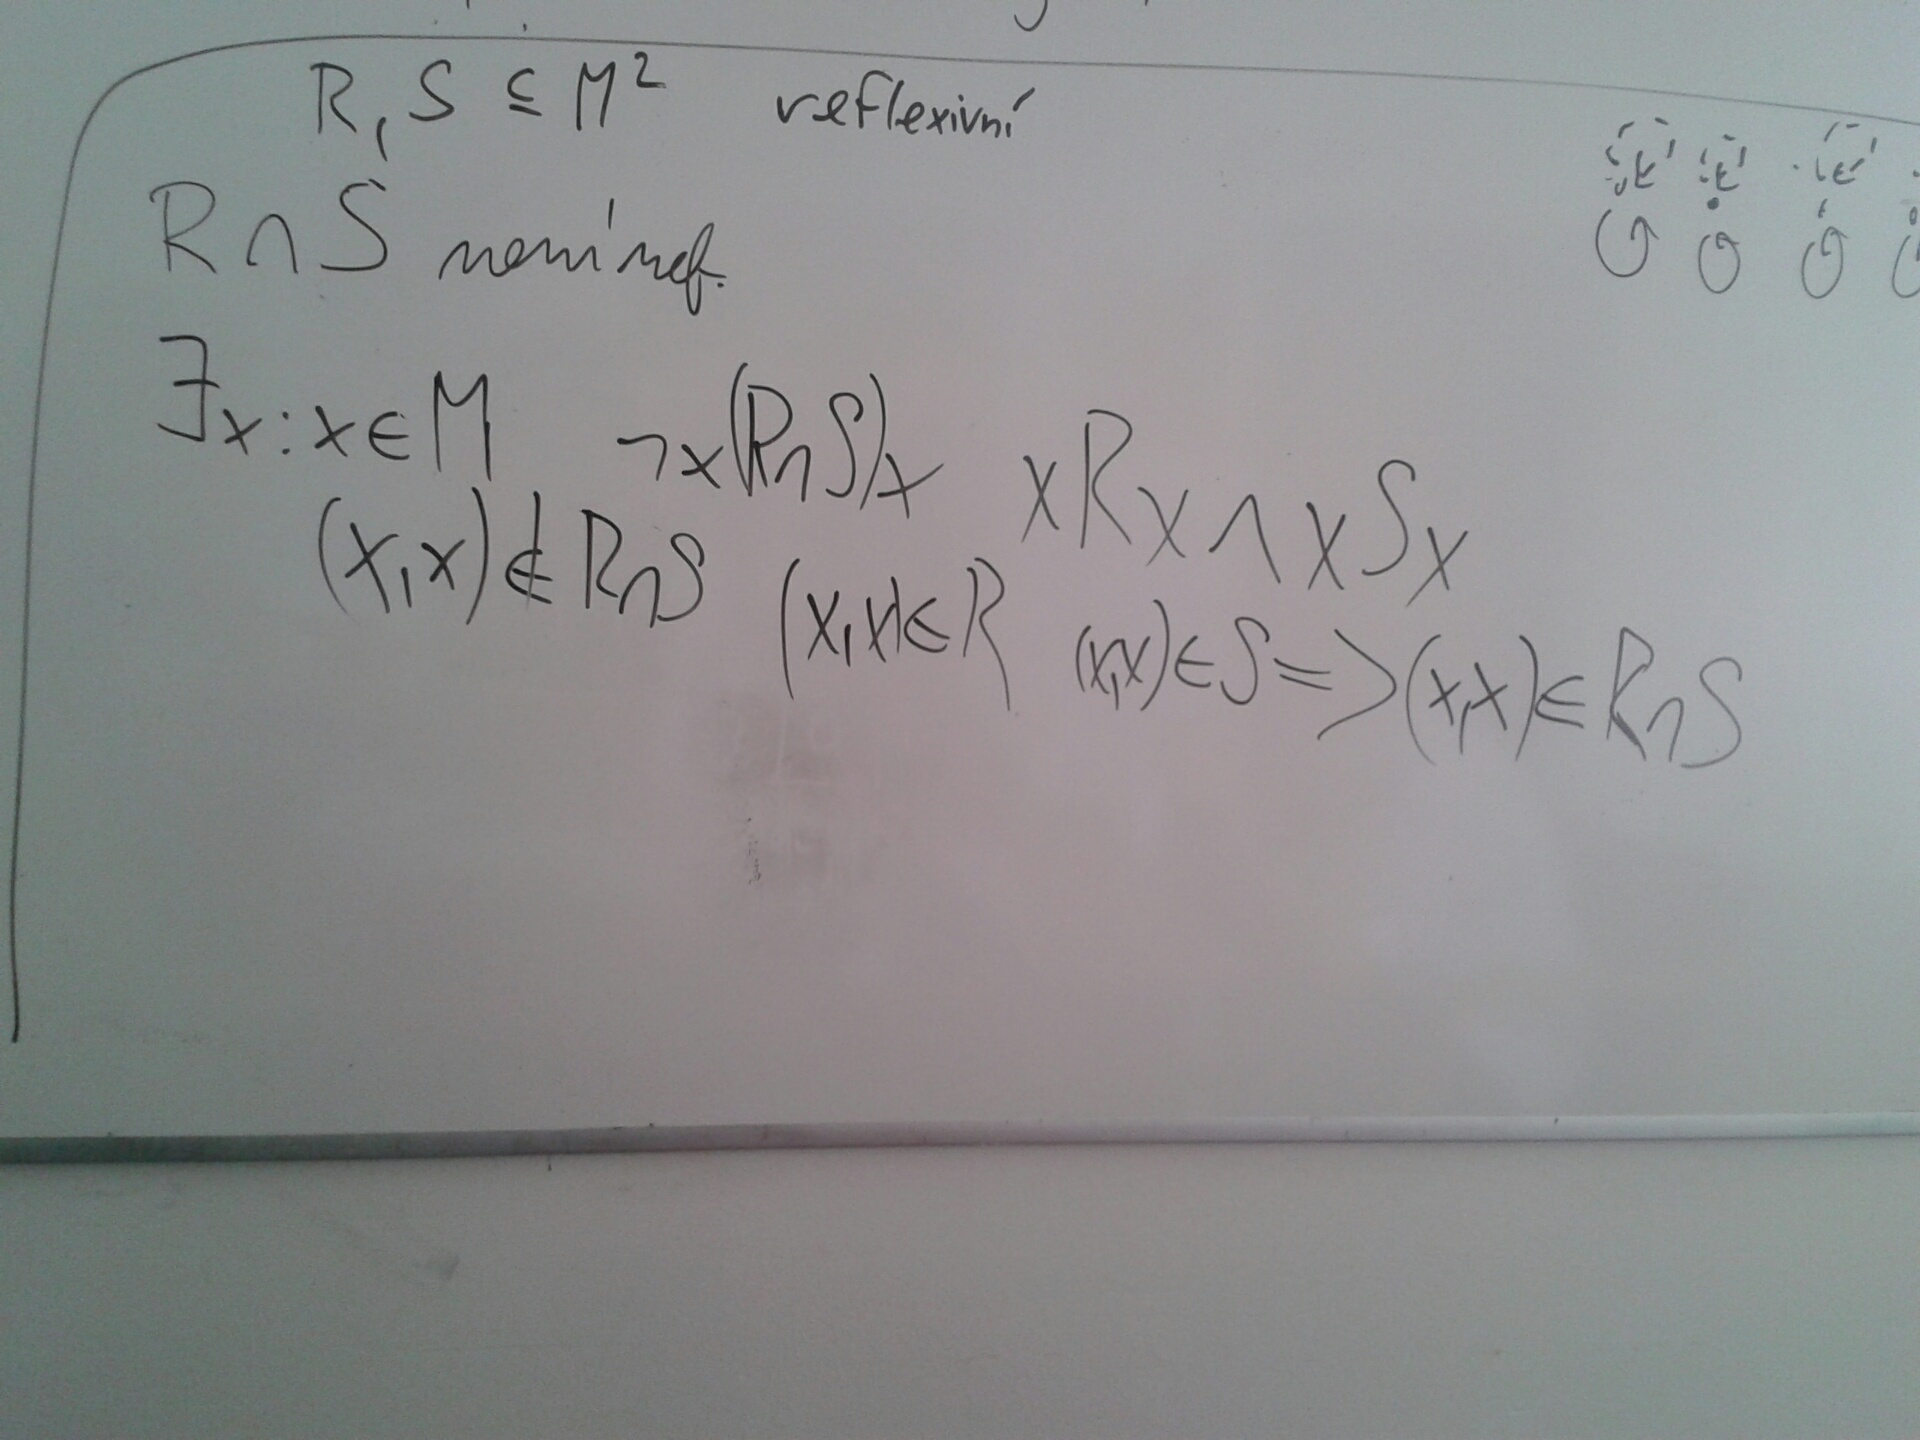 R, S ⊆ M² reflexivní
R ∩ S není ref.
∃x: x ∈ M ¬x(R∩S)x xRx ∧ xSx
(x,x) ∉ R∩S (x,x) ∈ R (x,x) ∈ S => (x,x) ∈ R∩S